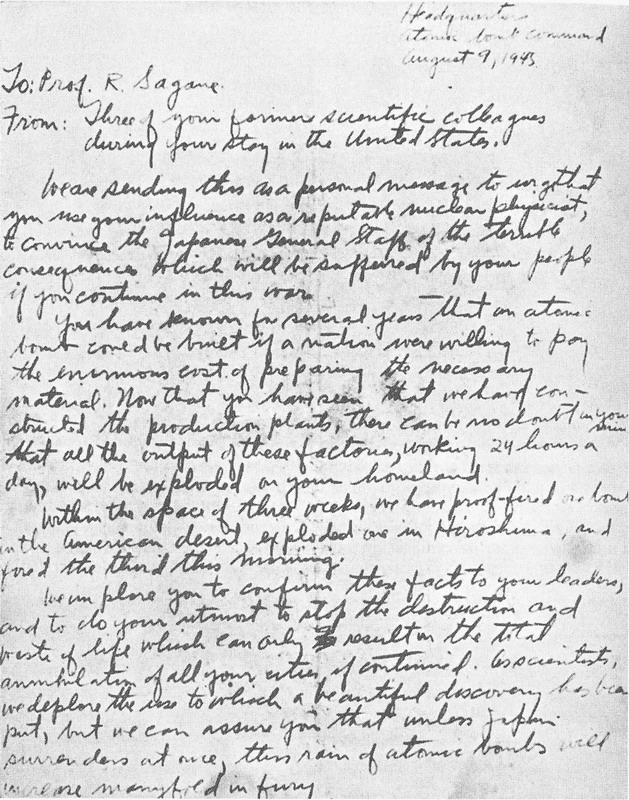 Headquarters
Atomic bomb command
August 9, 1945
To: Prof. R. Sagane.
From: Three of your former scientific colleagues
during your stay in the United States.
We are sending this as a personal message to urge that
you use your influence as a reputable nuclear physicist,
to convince the Japanese General Staff of the terrible
consequences which will be suffered by your people
if you continue in this war.
You have known for several years that an atomic
bomb could be built if a nation were willing to pay
the enormous cost of preparing the necessary
material. Now that you have seen that we have con-
structed the production plants, there can be no doubt in your
mind
that all the output of these factories, working 24 hours a
day, will be exploded on your homeland.
Within the space of three weeks, we have proof-fired one bomb
in the American desert, exploded one in Hiroshima, and
fired the third this morning.
We implore you to confirm these facts to your leaders,
and to do your utmost to stop the destruction and
waste of life which can only result in the total
annihilation of all your cities, if continued. As scientists,
we deplore the use to which a beautiful discovery has been
put, but we can assure you that unless Japan
surrenders at once, this rain of atomic bombs will
increase manyfold in fury